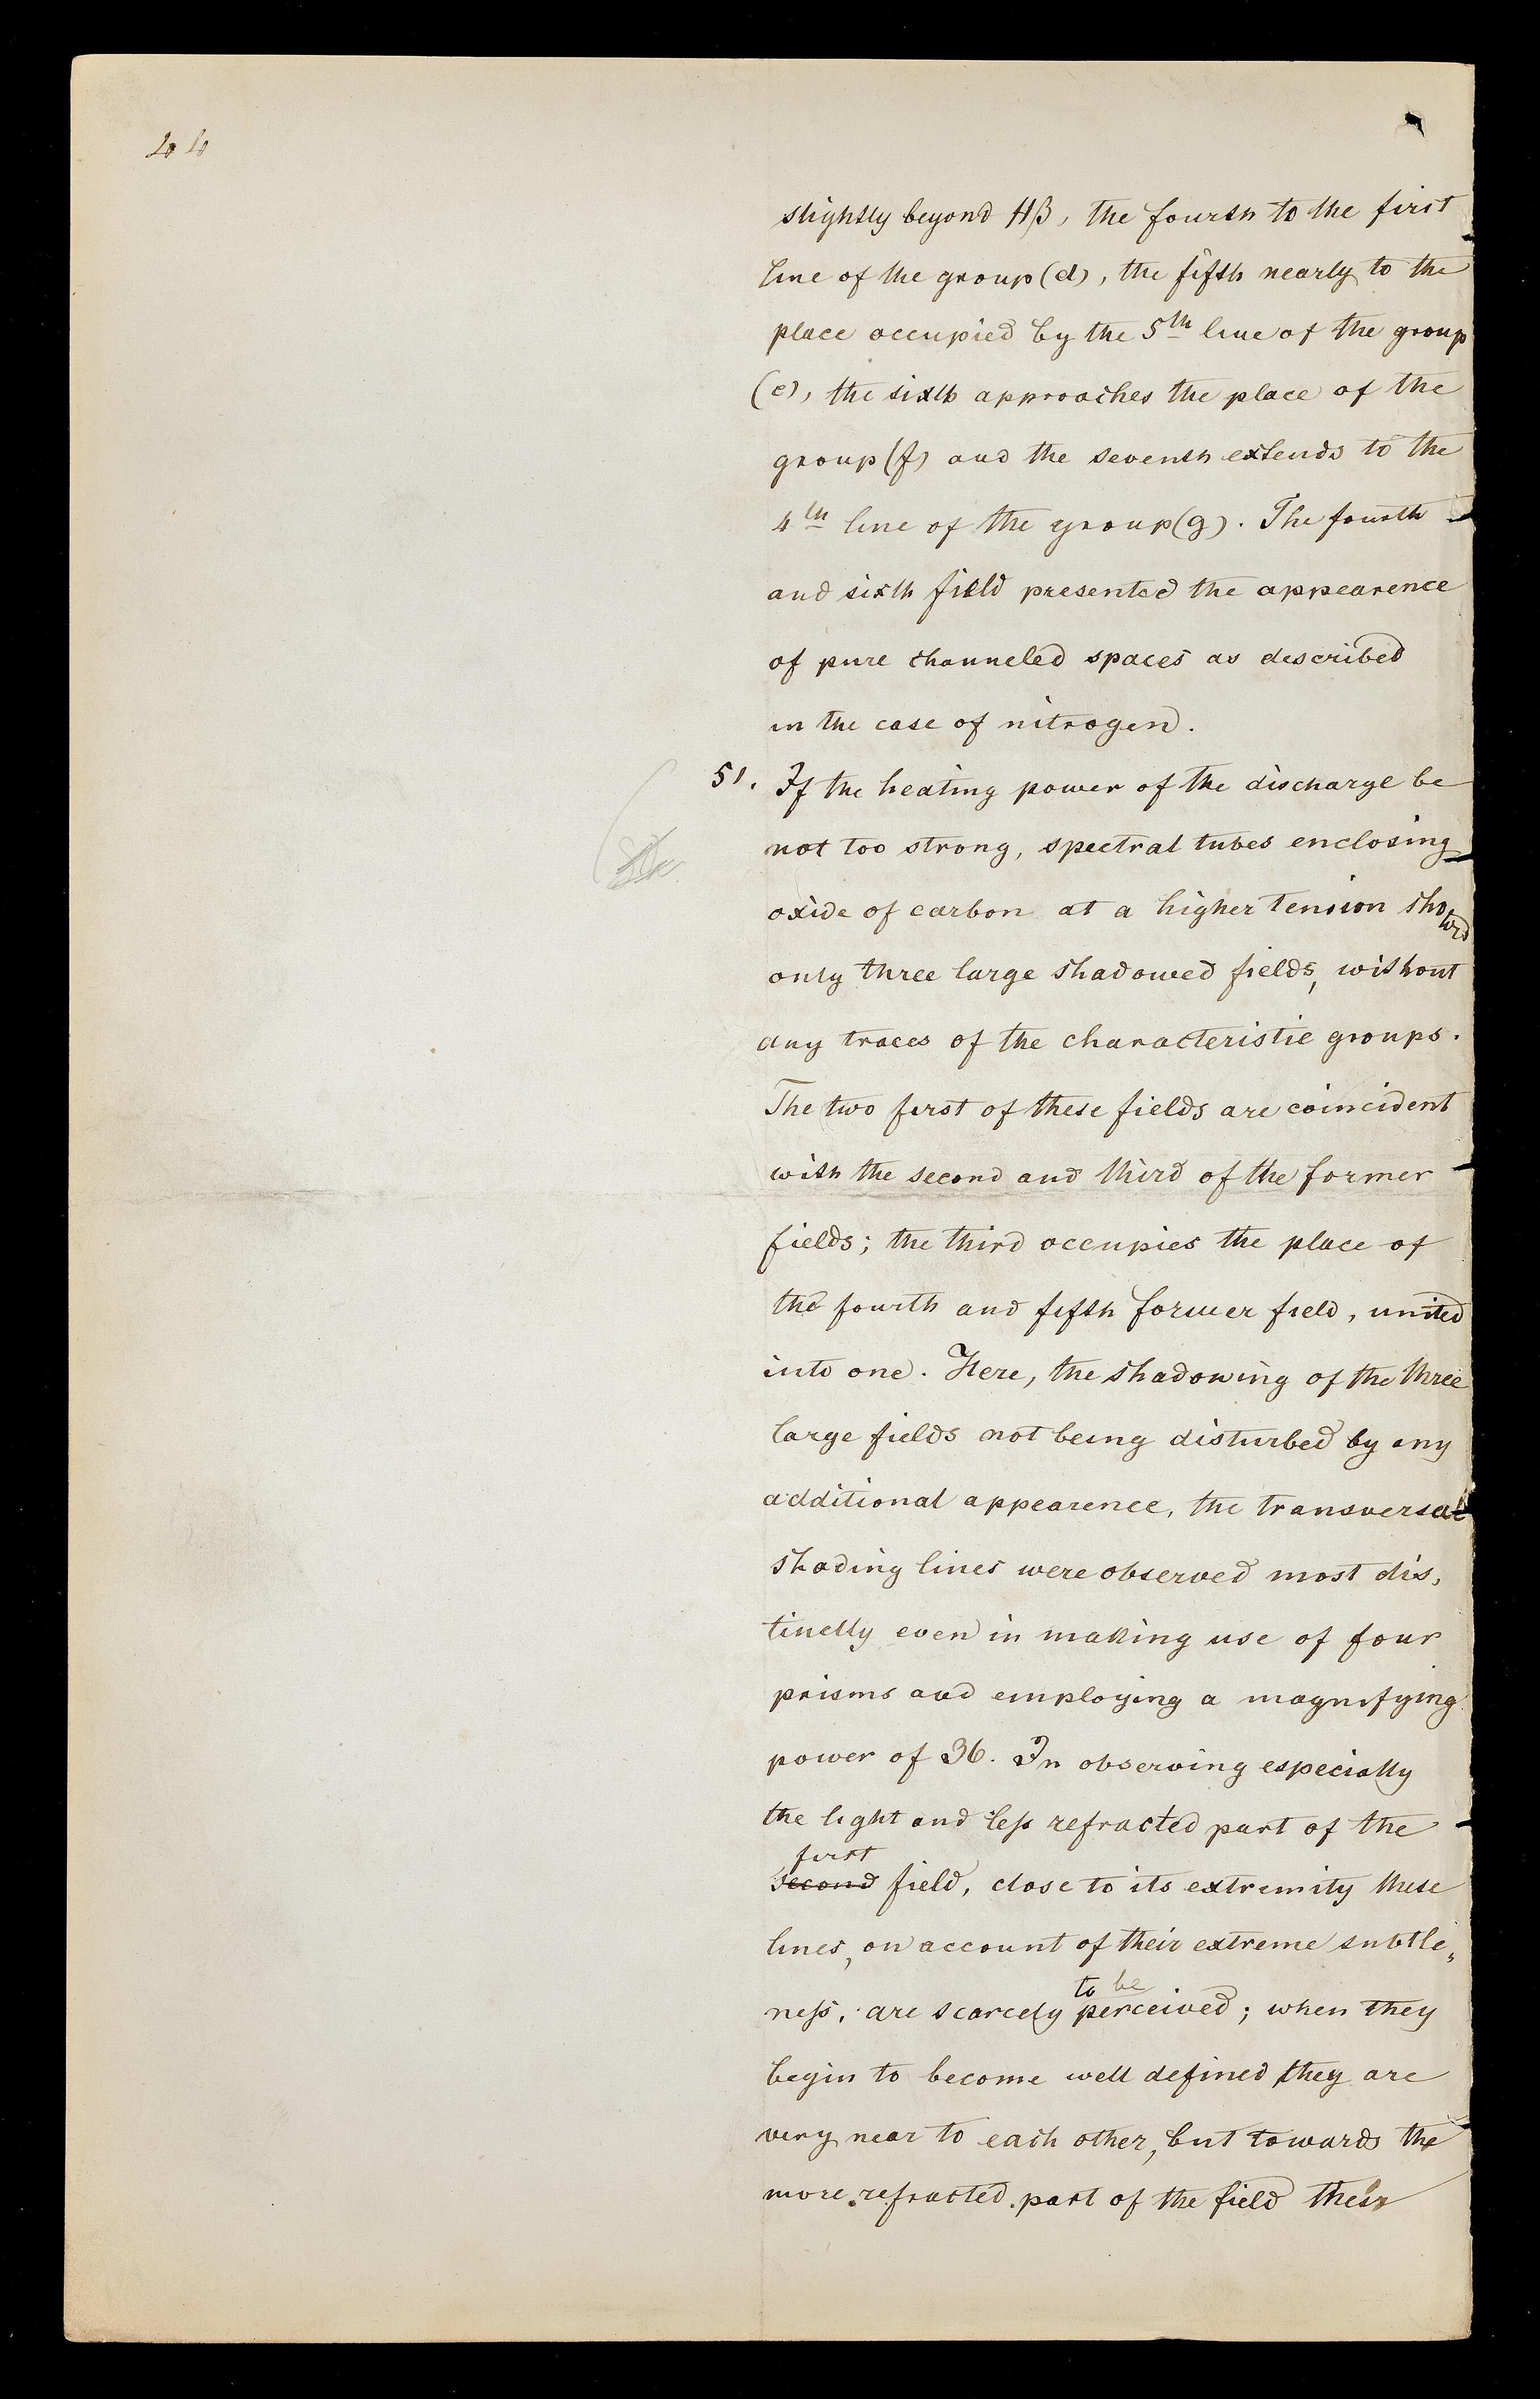 44
slightly beyond Hβ, the fourth to the first
line of the group (d), the fifth nearly to the
place occupied by the 5th line of the group
(e), the sixth approaches the place of the
group (f) and the seventh extends to the
4th line of the group (g). The fourth
and sixth field presented the appearence
of pure channeled spaces as described
in the case of nitrogen.
51. If the heating power of the discharge be
not too strong, spectral tubes enclosing
oxide of carbon at a higher tension showed
only three large shadowed fields, without
any traces of the characteristic groups.
The two first of these fields are coincident
with the second and third of the former
fields; the third occupies the place of
the fourth and fifth former field, united
into one. Here, the shadowing of the three
large fields not being disturbed by any
additional appearence, the transversal
shading lines were observed most dis,
tinctly even in making use of four
prisms and employing a magnifying
power of 36. In observing especially
the light and less refracted part of the
first
second field, close to its extremity these
lines, on account of their extreme subtle,,
to be
ness, are scarcely perceived; when they
begin to become well defined they are
very near to each other, but towards the
more refracted part of the field their